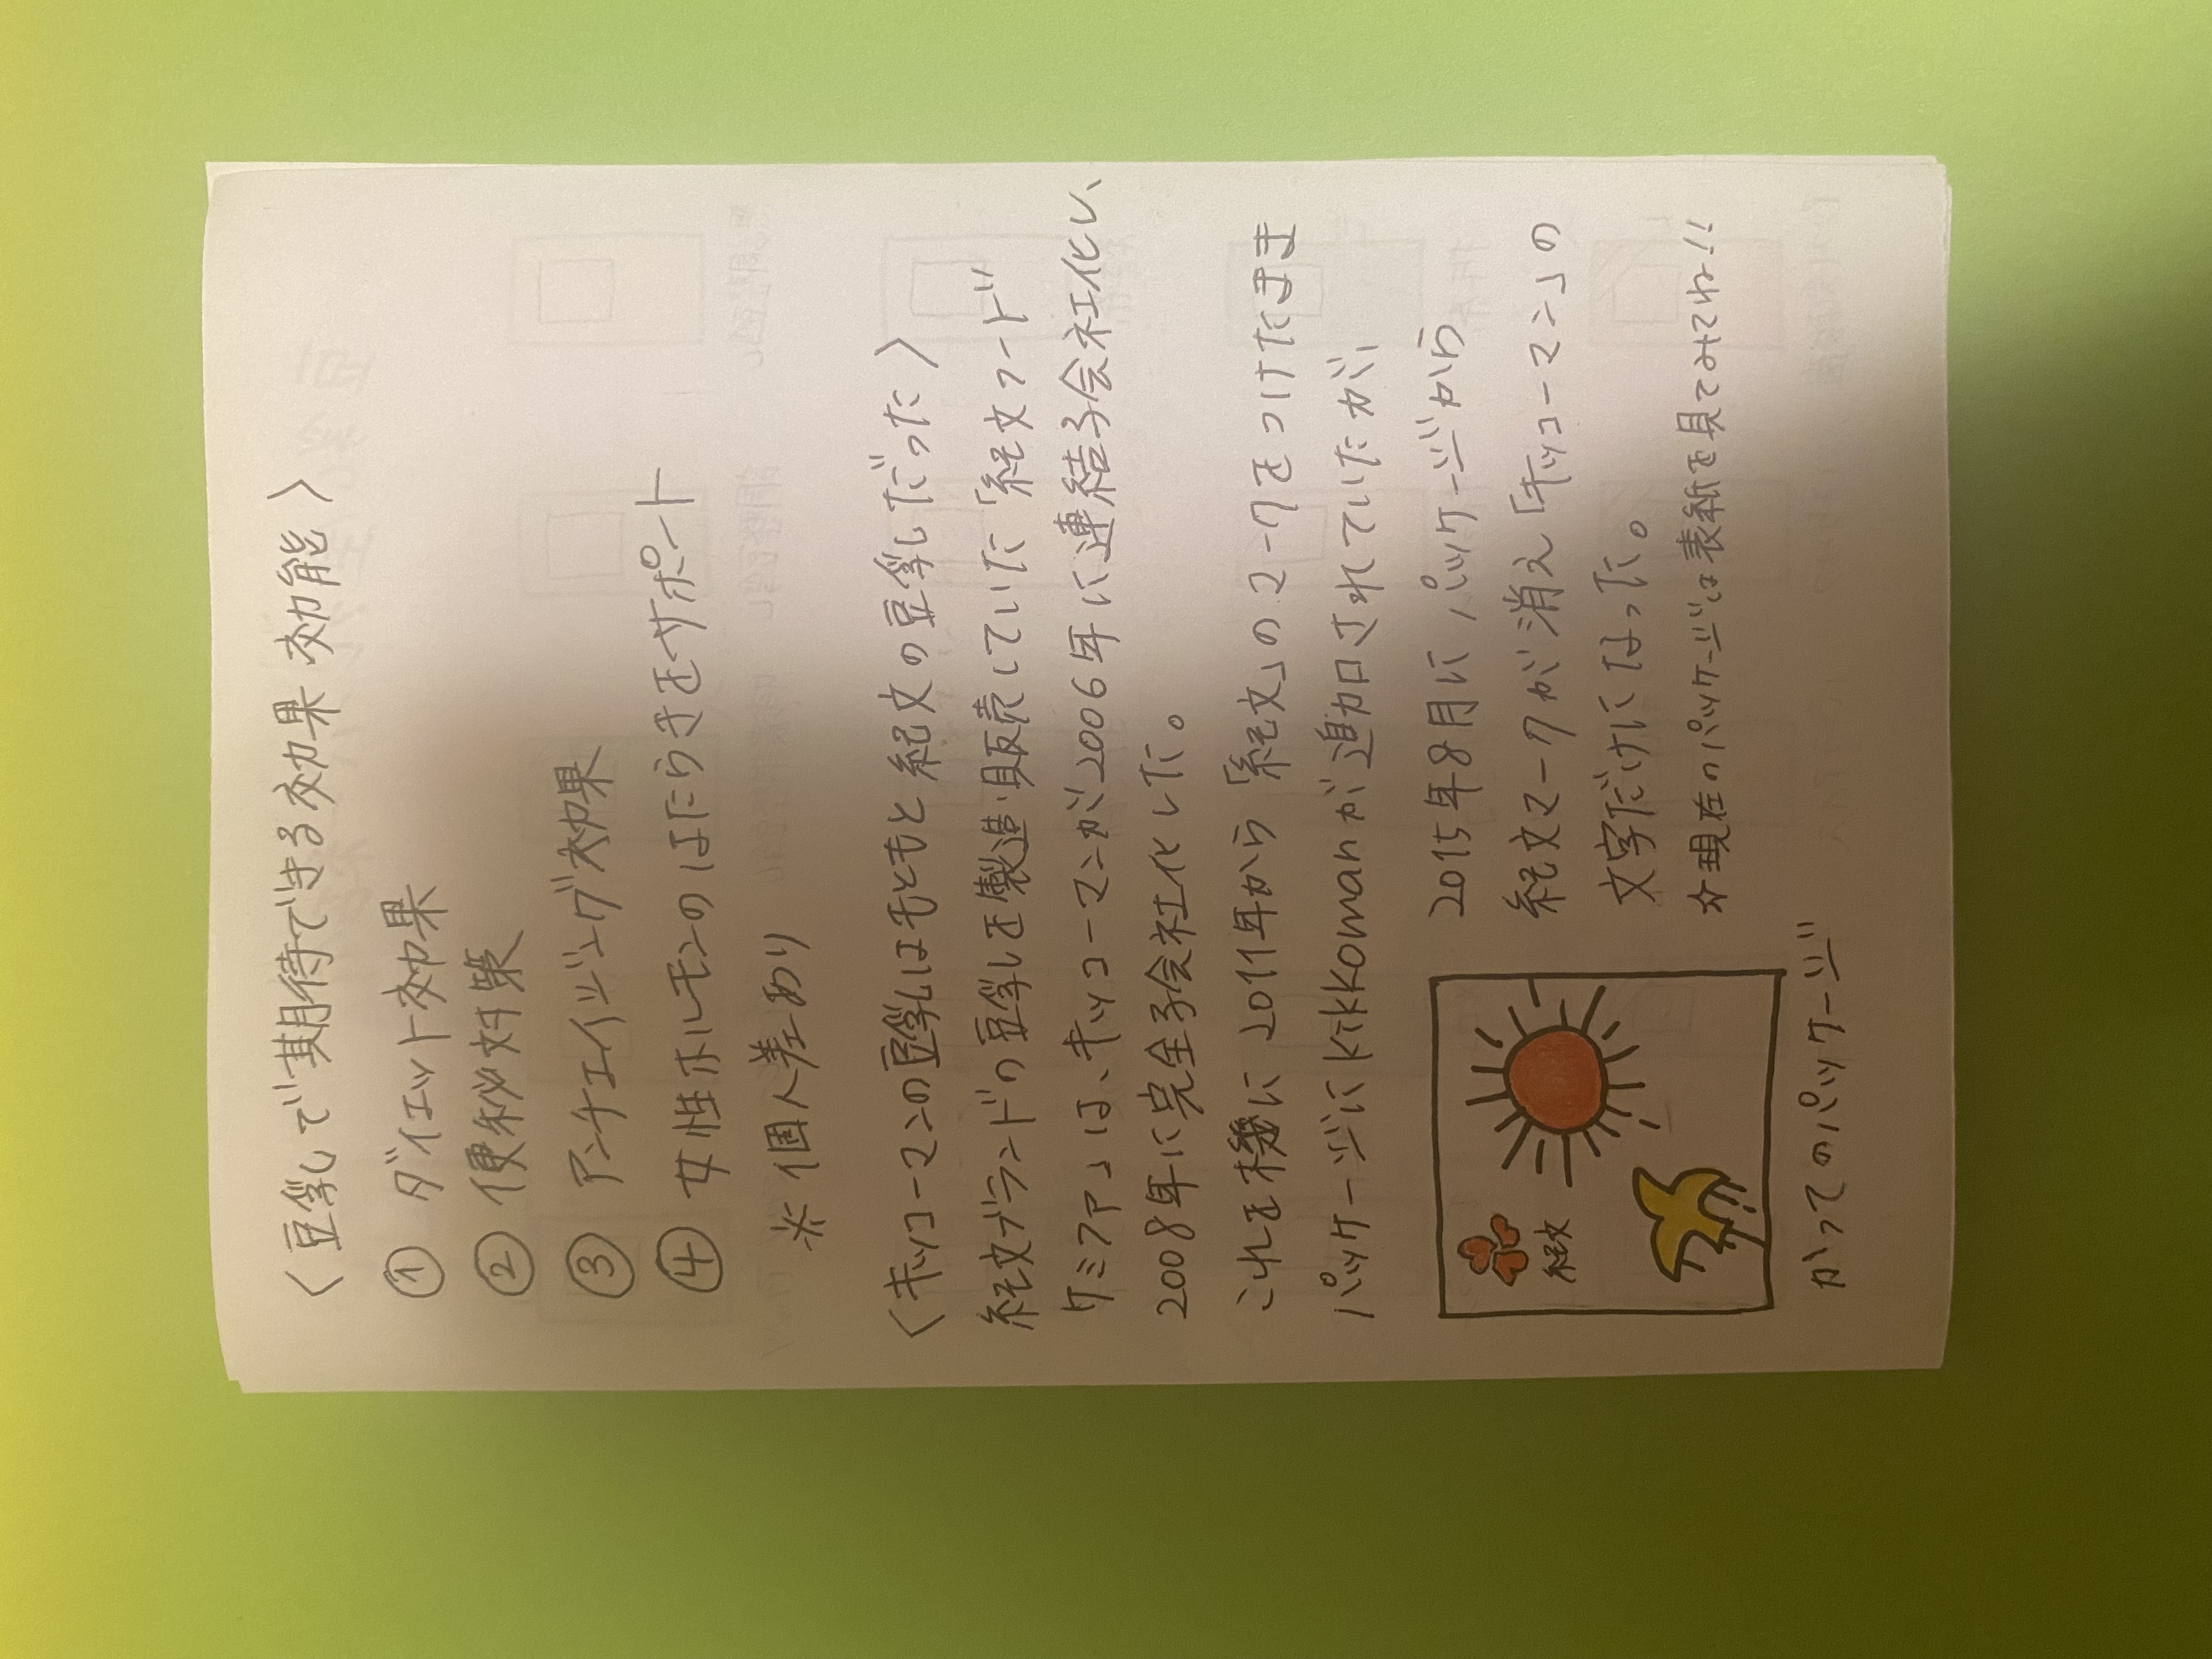 〈豆乳で期待できる効果 効能〉
① ダイエット効果
② 便秘対策
③ アンチエイジング効果
④ 女性ホルモンのはたらきをサポート
※ 個人差あり
〈キッコーマンの豆乳はもともと紀文の豆乳だった〉
紀文ブランドの豆乳を製造・販売していた「紀文フード
ケミファ」は、キッコーマンが2006年に連結子会社化し、
2008年に完全子会社化した。
これを機に2011年から「紀文」のマークをつけたまま
パッケージにkikkomanが追加されていたが、
2015年8月にパッケージから
紀文マークが消え「キッコーマン」の
文字だけになった。
☆現在のパッケージは表紙を見てみてね!!
紀文
かつてのパッケージ